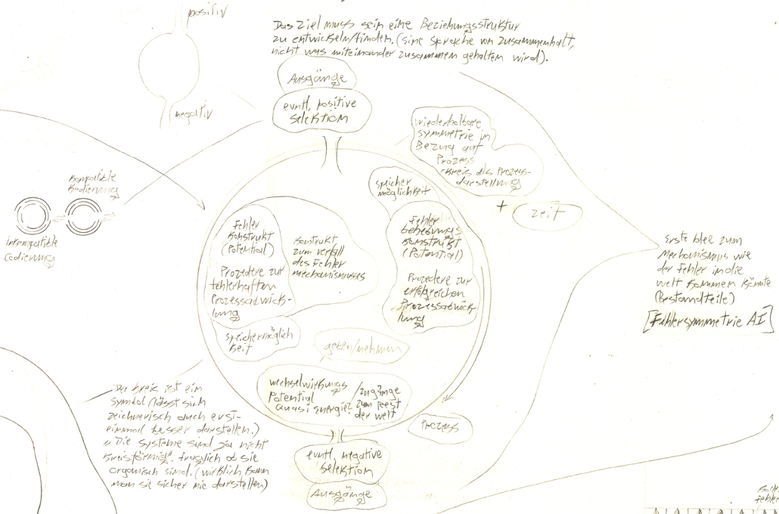 positiv
negativ
Das Ziel muss sein eine Beziehungsstruktur
zu entwickeln/finden. (eine Sprache von Zusammenhalt,
nicht was miteinander zusammen gehalten wird).
Ausgänge
evntl. positive
selektion
wiederholbare
symmetrie in
Bezug auf
Prozess
Kreis des Prozess-
darstellung
+
Zeit
Kompatible
Kodierung
Inkompatible
Codierung
speicher
möglichkeit
Fehler
Konstrukt
(Potential)
Prozedere zur
fehlerhaften
Prozess
lung
Kontrukt
zum verfall
des Fehler
mechanismuses
Fehler
behebungs
Konstrukt
(Potential)
Prozedere zur
erfolgreichen
Prozess
lung
speichermöglich
keit
geben/nehmen
wechselwirkungs
Potential
quasi energie
/zugänge
zum
der welt
Prozess
evntl. negative
selektion
Ausgänge
Erste Idee zum
mechanismus wie
der Fehler in die
welt kommen könnte
(Bestandteile)
[Fehlersymmetrie AI]
Der Kreis ist ein
symbol (lässt sich
zeichnerisch auch erst
einmal besser darstellen.)
"Die Systeme sind ja nicht
Kreisförmig". fraglich ob sie
organisch sind. (wirklich kann
man sie sicher nie darstellen)
fehler